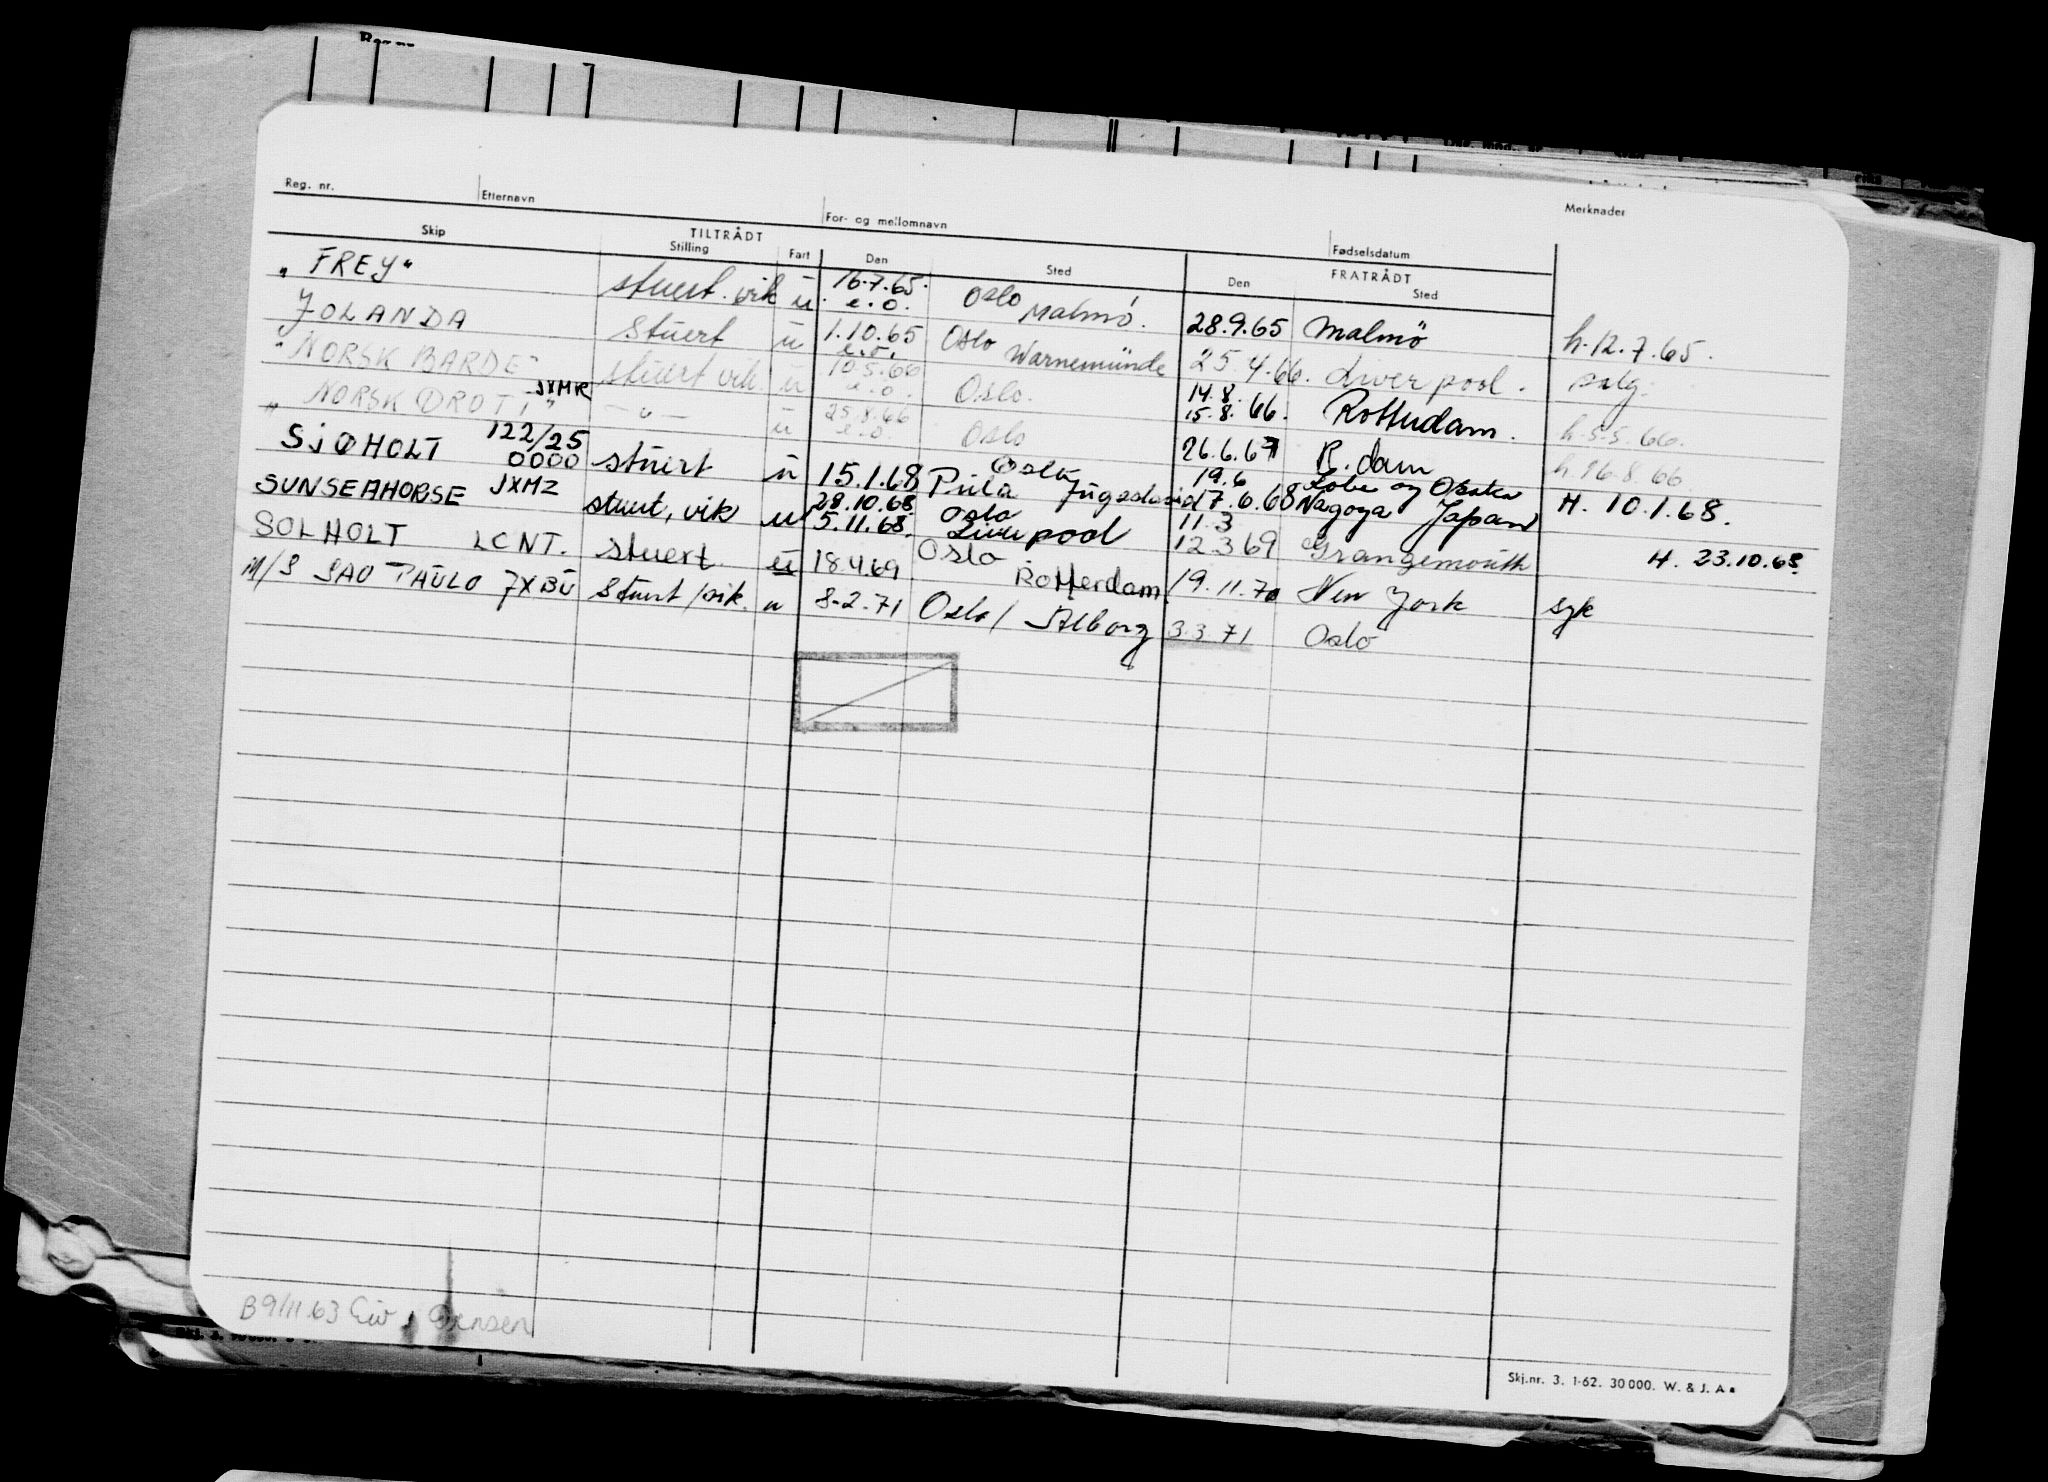 Reg. nr. Etternavn For- og mellomnavn Fødselsdatum Merknader
TILTRÅDT FRATRÅDT
Skip Stilling Fart Den Sted Den Sted
"FREY" stuert. vik u. 16.7.65. e.o. Oslo Malmö. 28.9.65 Malmö h. 12.7.65.
JOLANDA stuert u 1.10.65 e.o. Oslo Warnemünde 25.4.66. Liverpool. salg.
"NORSK BARDE" stuert vik. u 10.5.66 e.o. Oslo. 14.8. 15.8.66. Rotterdam. h. 5.5.66.
"NORSK DROTT" JXMR — " — u 25.8.66 e.o. Oslo 26.6.67 R.dam h. 16.8.66
SJØHOLT 122/25 0000 stuert u 15.1.68 Oslo Pula Jugoslavia 19.6 17.6.68 Kobe og Osaka Nagoya Japan H. 10.1.68.
SUNSEAHORSE JXMZ stuert, vik u 28.10.68. 5.11.68. Oslo Liverpool 11.3 12.3.69 Grangemouth H. 23.10.68.
SOLHOLT LCNT. stuert. u 18.4.69 Oslo Rotterdam. 19.11.70 New York syk
M/S SAO PAULO JXBU Stuert/vik. u 8-2.71 Oslo/ Ålborg 3.3.71 Oslo
B 9/11.63 Eiv. Jensen
Skj.nr. 3. 1-62. 30 000. W. & J. A.